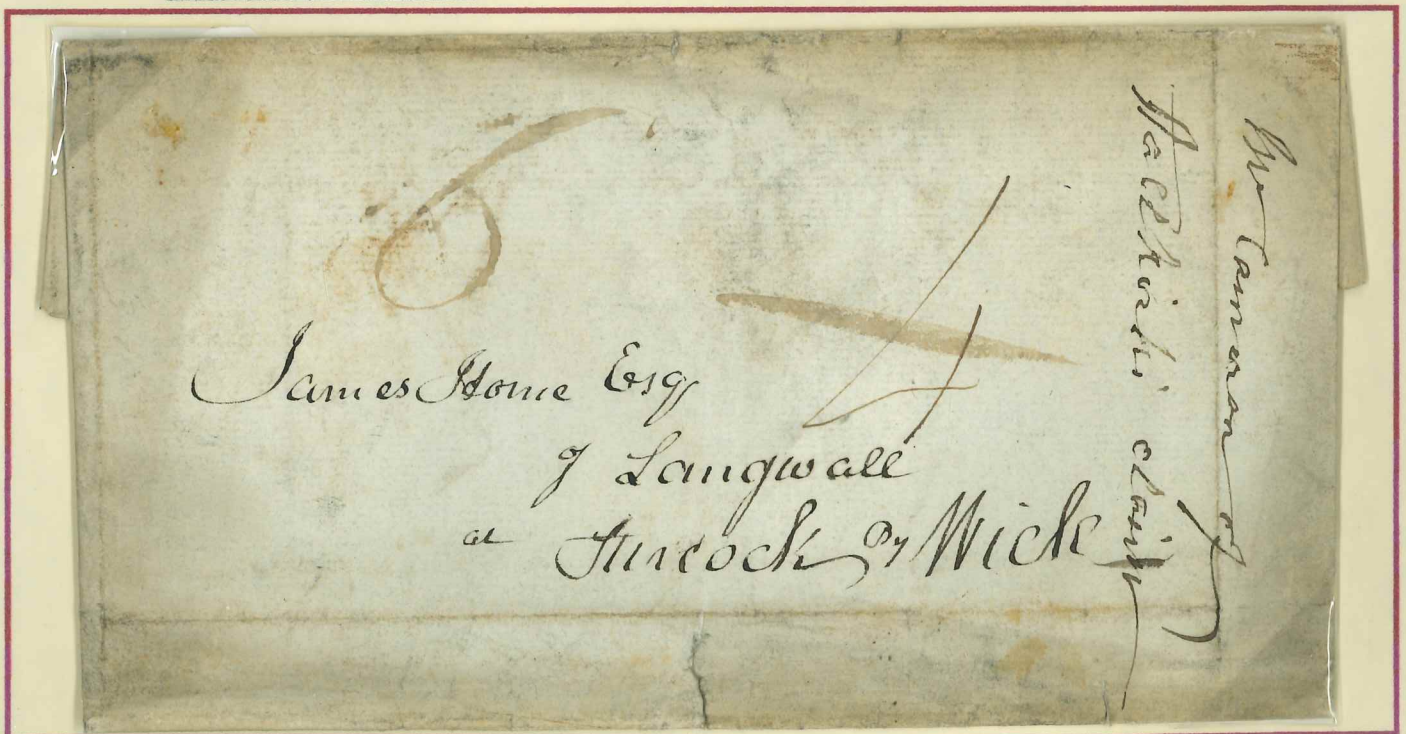 6
4
James Home Esqr
of Langwall
at Stircock By Wick
Mr Cameron of
Halkirks claim